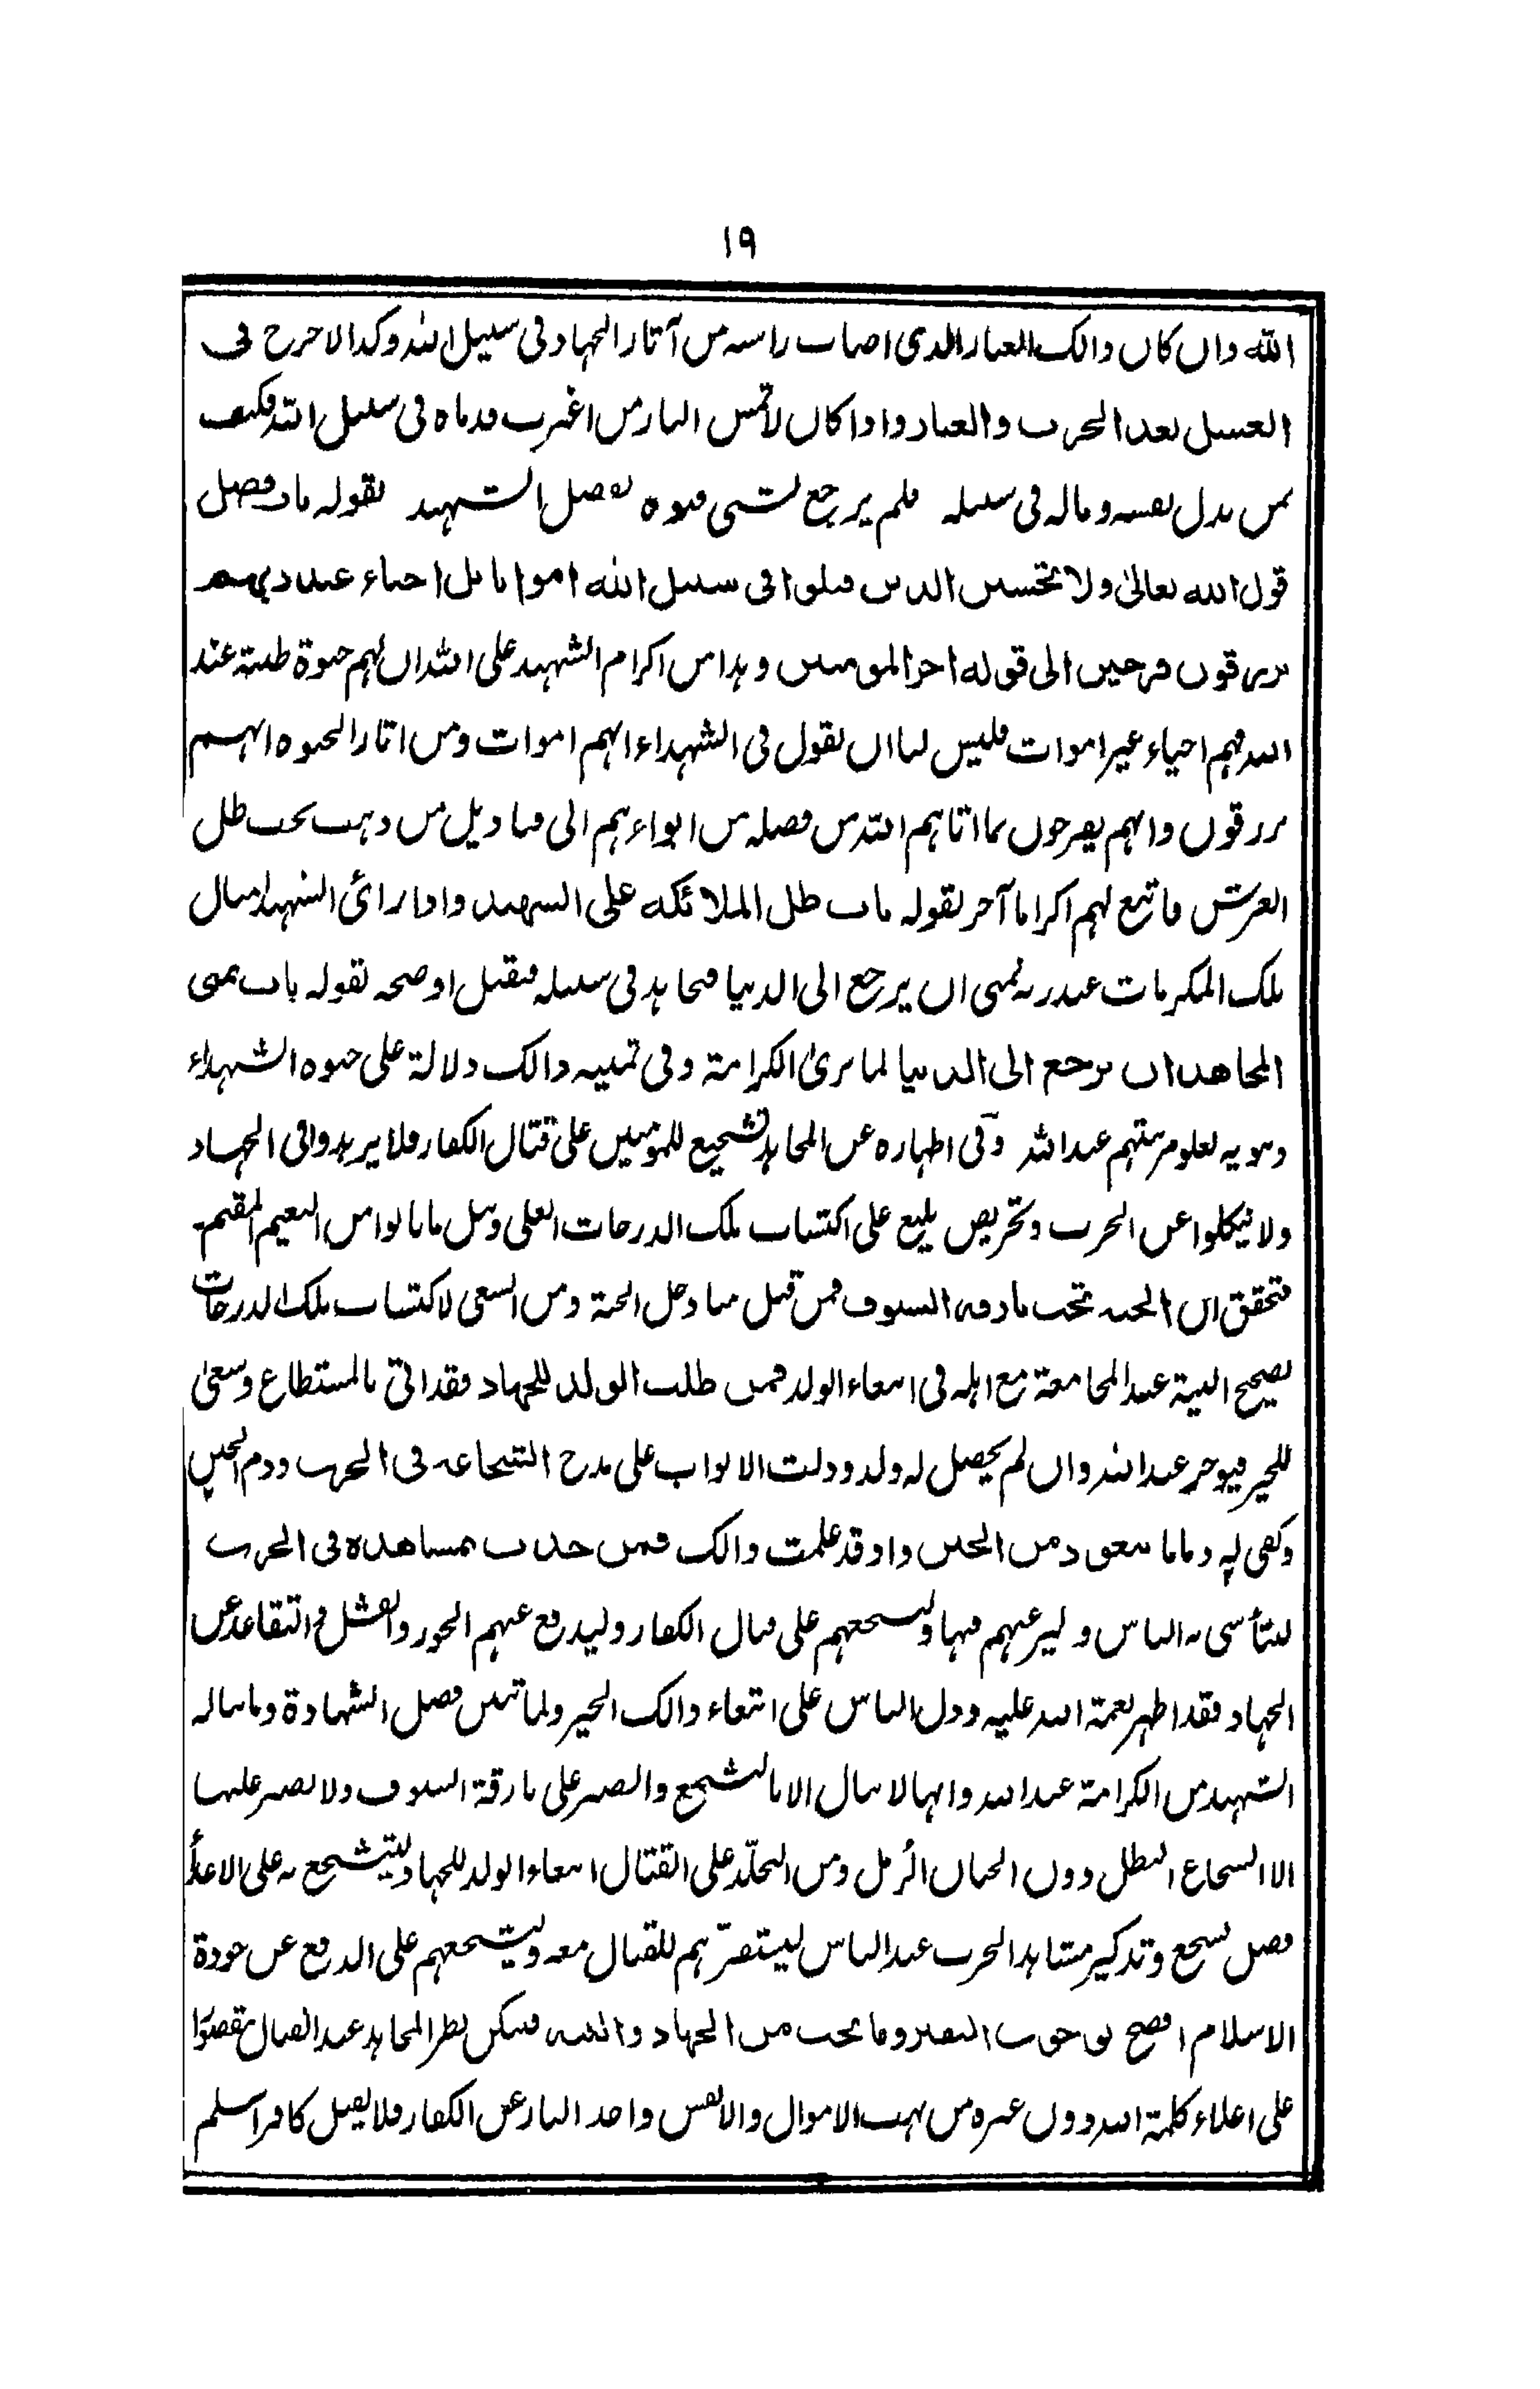 ١٩
الله وان كان ذالك الغبار الذى اصاب راسه من آثار الجهاد فى سبيل الله وكذا لا حرج فى
الغسل بعد الحرب والغبار واذا كان لا تمس النار من اغبرت قدماه فى سبيل الله فكيف
بمن بذل نفسه وماله فى سبيله فلم يرجع بشىء فنوه بفضل الشهيد بقوله باب فضل
قول الله تعالىٰ ولا تحسبن الذين قتلوا فى سبيل الله امواتا بل احياء عند ربهم
يرزقون فرحين الى قوله اجر المومنين وهذا من اكرام الشهيد على الله ان لهم حيوة طيبة عند
الله فهم احياء غير اموات فليس لنا ان نقول فى الشهداء انهم اموات ومن اثار الحيوه انهم
يرزقون وانهم يفرحون بما اتاهم الله من فضله من ايواءهم الى قناديل من ذهب تحت ظل
العرش فاتبع لهم اكراما آخر بقوله باب ظل الملائكه على الشهيد واذا رائ الشهيد امثال
تلك المكرمات عند ربه تمنى ان يرجع الى الدنيا فيجاهد فى سبيله فيقتل اوضحه بقوله باب تمنى
المجاهد ان يرجع الى الدنيا لما يرىٰ الكرامة وفى تمنيه ذالك دلالة على حيوه الشهداء
وتنويه لعلو مرتبتهم عند الله وفى اظهاره عن المجاهد تشجيع للمؤمنين على قتال الكفار فلا يزهدوا فى الجهاد
ولا ينكلوا عن الحرب وتحريص بليغ على اكتساب تلك الدرجات العلى ونيل ما نالوا من النعيم المقيم
فتحقق ان الجنه تحت بارقه السيوف فمن قتل منا دخل الجنة ومن السعى لاكتساب تلك الدرجات
تصحيح النية عند المجامعة مع اهله فى ابتغاء الولد فمن طلب الولد للجهاد فقد اتى بالمستطاع وسعىٰ
للخير فيوجر عند الله وان لم يحصل له ولد ودلت الابواب على مدح الشجاعه فى الحرب وذم الجبن
وكفى به ذما ما يتعوذ من الجبن واذ قد علمت ذالك فمن حدث بمشاهده فى الحرب
ليتأسى به الناس وليرغبهم فيها وليشجعهم على قتال الكفار وليدفع عنهم الخور والفشل والتقاعد عن
الجهاد فقد اظهر نعمة الله عليه ودل الناس على ابتغاء ذالك الخير ولما تبين فضل الشهادة وما يناله
الشهيد من الكرامة عند الله وانها لا تنال الا بالتشجع والصبر على بارقة السيوف ولا يصبر عليها
الا الشجاع البطل دون الجبان الزمل ومن التجلّد على القتال ابتغاء الولد للجهاد ليتشجع به على الاعداء
فصل تشجع وتذكير مشاهد الحرب عند الناس ليستفزهم للقتال معه وليشجعهم على الدفع عن حوزة
الاسلام افصح بوجوب النفير وما يجب من الجهاد والنيه فيكن نظر المجاهد عند القتال مقصورًا
على اعلاء كلمة الله دون غيره من نهب الاموال والانفس واخذ الثار عن الكفار فلا يقتل كافرا اسلم